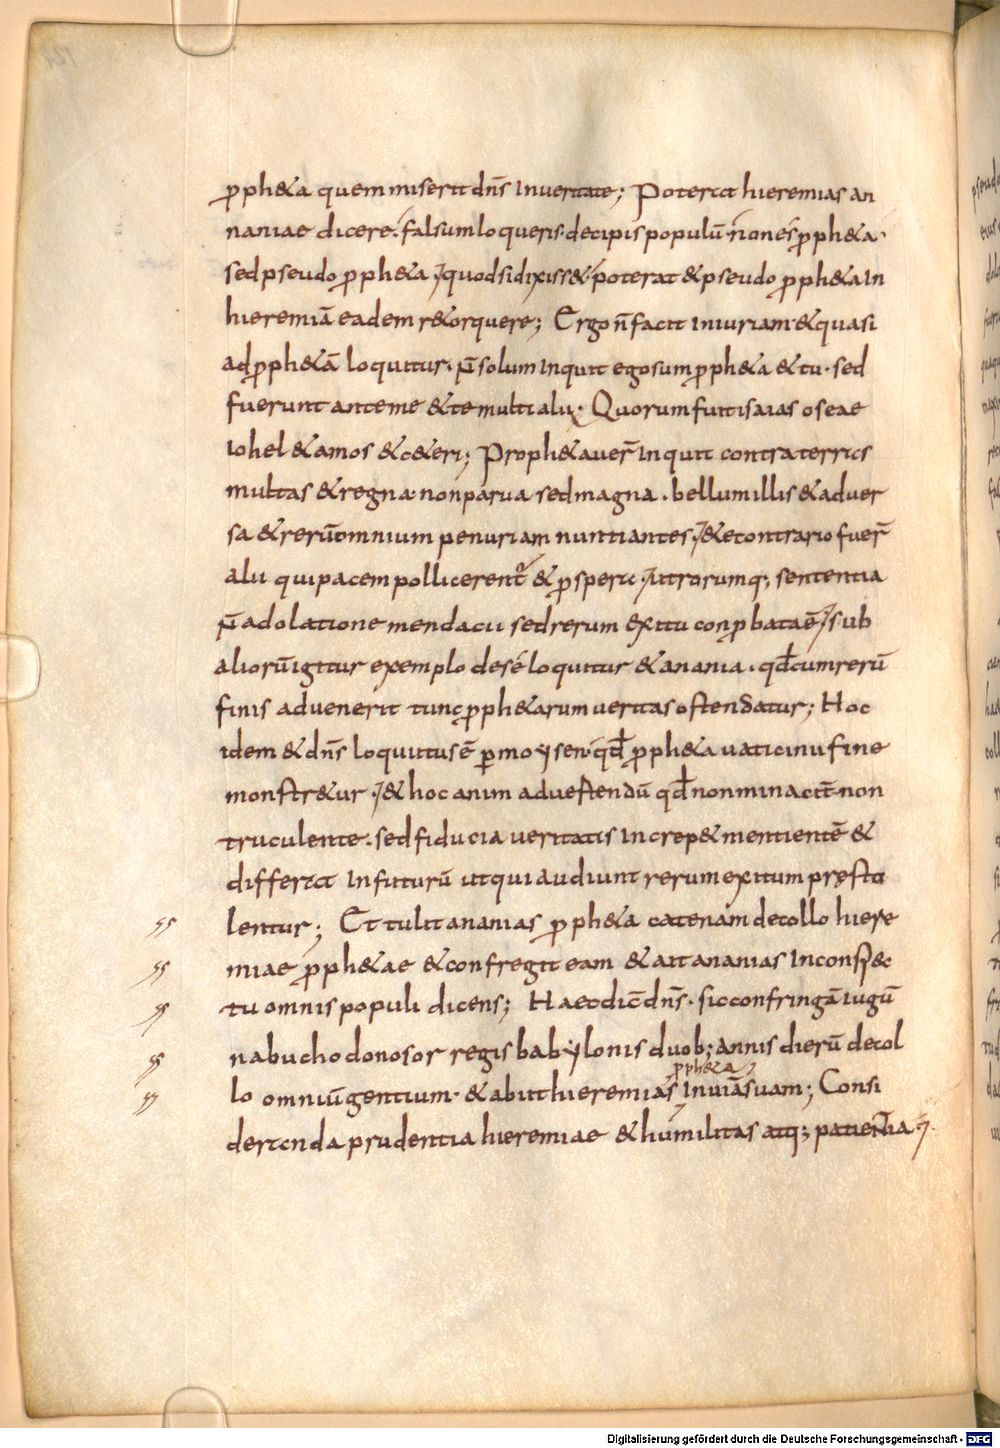 ꝓph&a quem miserit dn̄s in ueritate; Poterat hieremias an
naniae dicere. falsum loqueris. decipis populū. n̄ones ꝓph&a.
sed pseudo ꝓph&a. quod si dixiss& poterat & pseudo ꝓph&a in
hieremiā eadem r&orquere; Ergo n̄ facit iniuriam. & quasi
ad ꝓph&ā loquitur. n̄ solum inquit ego sum ꝓph&a & tu. sed
fuerunt ante me & te multi alii. Quorum fuit isaias oseae
iohel & amos & c&eri; Proph&auer̄ inquit contra terras
multas & regna. non parua sed magna. bellum illis & aduer
sa & rerū omnium penuriam nuntiantes. & e contrario fuer̄
alii qui pacem pollicerent̄ & ꝓspera. utrorumq; sententia
n̄ adolatione mendacii sed rerum exitu conꝓbata ē. sub
aliorū igitur exemplo de se loquitur & anania. qđ cum rerū
finis aduenerit tunc ꝓph&arum ueritas ostendatur; Hoc
idem & dn̄s loquutus ē ꝑ moysen. qđ ꝓph&a uaticinii fine
monstr&ur. & hoc animaduertendū qđ non minacit̄ non
truculente. sed fiducia ueritatis increp& mentientē &
differat in futurū ut qui audiunt rerum exitum pręsto
lentur; Et tulit ananias ꝓph&a catenam de collo hiere
miae ꝓph&ae & confregit eam & ait ananias in consp&c
tu omnis populi dicens; Haec dic̄ dn̄s. sic confringā iugū
nabuchodonosor regis babylonis duob; annis dierū de col
ꝓph&a
lo omniū gentium. & abiit hieremias in uiā suam; Consi
deranda prudentia hieremiae & humilitas atq; patientia
Digitalisierung gefördert durch die Deutsche Forschungsgemeinschaft - DFG